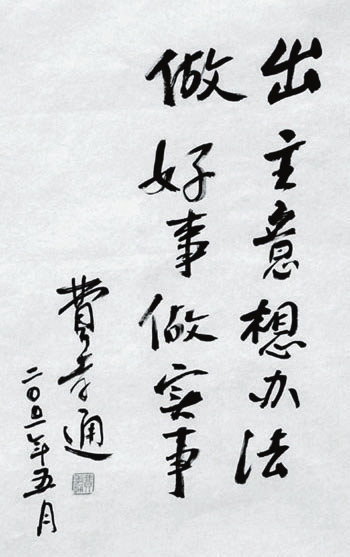 出主意想办法
做好事做实事
費孝通
二〇〇二年五月